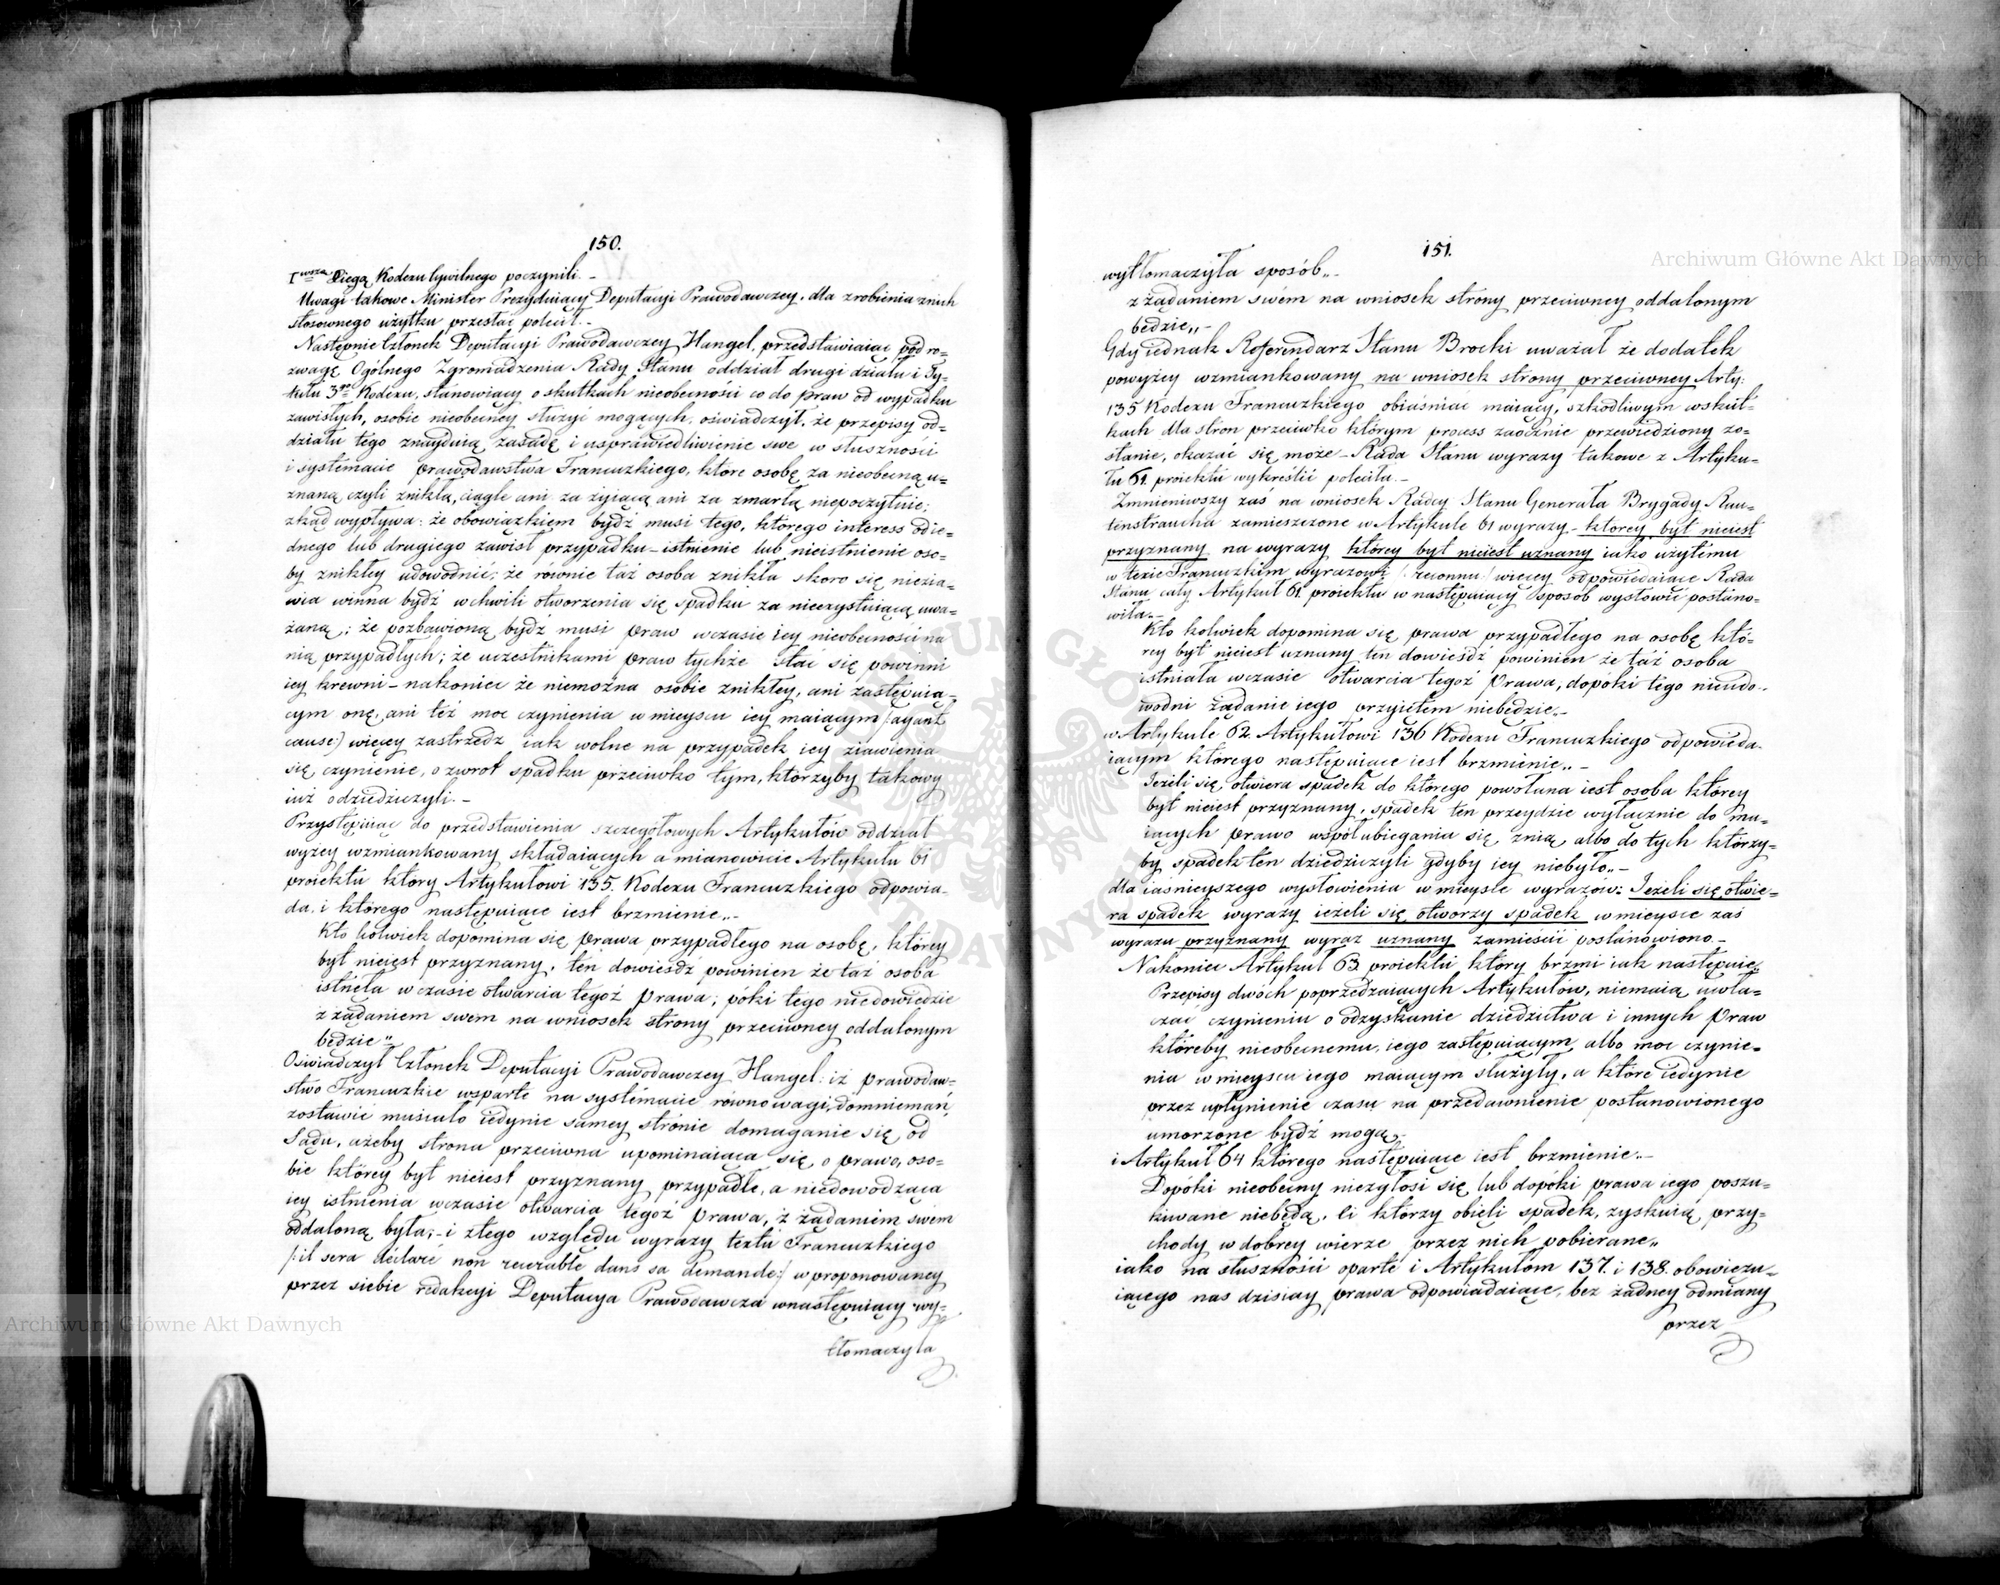 150.
Xięgą Kodexu Cywilnego poczynili. –
Uwagi takowe Minister Prezyduiący Deputacyi Prawodawczey, dla zrobienia z nich
stosownego użytku przesłać polecił. –
Następnie Członek Deputacyi Prawodawczey Hangel, przedstawiaiąc pod ro=
zwagę Ogólnego Zgromadzenia Rady Stanu oddział drugi działu i Ty=
tułu 3go Kodexu, stanowiący o skutkach nieobecności co do praw od wypadku
zawisłych, osobie nieobecney służyć mogących, oświadczył, że przepisy od=
działu tego znayduią zasadę i usprawiedliwienie swe w słuszności
i systemacie prawodawstwa Francuzkiego, które osobę za nieobecną u=
znaną czyli znikłą, ciągle ani za żyiącą ani za zmarłą niepoczytuie;
zkąd wypływa: że obowiązkiem bydź musi tego, którego interess od ie=
dnego lub drugiego zawisł przypadku – istnienie lub nieistnienie oso=
by znikłey udowodnić; że równie taż osoba znikła skoro się niezia=
wia winna bydź w chwili otworzenia się spadku za nieezystuiącą uwa=
żaną; że pozbawioną bydź musi praw w czasie iey nieobecności na
nią przypadłych; że uczestnikami praw tychże stać się powinni
iey krewni – nakoniec że niemożna osobie znikłey, ani zastępuią=
cym onę, ani też moc czynienia w mieyscu iey maiącym /: ayant
cause:/ więcey zastrzedz iak wolne na przypadek iey ziawienia
się czynienie, o zwrot spadku przeciwko tym, którzyby takowy
iuż odziedziczyli. –
Przystępuiąc do przedstawienia szczegółowych Artykułów oddział
wyżey wzmiankowany składaiących a mianowicie Artykułu 61
proiektu który Artykułowi 135. Kodexu Francuzkiego odpowia=
da, i którego następuiące iest brzmienie„ –
Kto kolwiek dopomina się prawa przypadłego na osobę, którey
był nieiest przyznany, ten dowieśdź powinien że taż osoba
istnęła w czasie otwarcia tegoż prawa; póki tego niedowiedzie
z żądaniem swem na wniosek strony przeciwney oddalonym
będzie"
Oświadczył Członek Deputacyi Prawodawczey Hangel: iż prawodaw=
stwo Francuzkie wsparte na systemacie równowagi domniemań,
zostawić musiało iedynie samey stronie domaganie się od
Sądu, ażeby strona przeciwna upominaiąca się o prawo, oso=
bie którey był nieiest przyznany przypadłe, a niedowodząca
iey istnienia w czasie otwarcia tegoż prawa, z żądaniem swem
oddaloną była; – i z tego względu wyrazy textu Francuzkiego
/: il sera déclaré non recevable dans sa demande :/ w proponowaney
przez siebie redakcyi Deputacya Prawodawcza w następuiący wy=
tłomaczyła
151.
wytłomaczyła sposób„ –
z żądaniem swém na wniosek strony przeciwney oddalonym
będzie„ –
Gdy iednak Referendarz Stanu Brocki uważał że dodatek
powyżey wzmiankowany na wniosek strony przeciwney Arty:
135 Kodexu Francuzkiego obiaśniać maiący, szkodliwym w skut=
kach dla stron przeciwko którym process zaocznie przewiedziony zo=
stanie, okazać się może – Rada Stanu wyrazy takowe z Artyku=
łu 61. proiektu wykreślić poleciła. –
Zmnieniwszy zaś na wniosek Radcy Stanu Generała Brygady Rau=
tenstraucha zamieszczone w Artykule 61 wyrazy – którey był nieiest
przyznany na wyrazy którey był nieiest uznany iako użytemu
w texcie Francuzkim wyrazowi / reconnu / więcey odpowiedaiące Rada
Stanu cały Artykuł 61. proiektu w następuiący sposób wysłowić postano=
wiła. –
Kto kolwiek dopomina się prawa przypadłego na osobę któ=
rey był nieiest uznany ten dowieśdź powinien że taż osoba
istniała w czasie otwarcia tegoż Prawa, dopóki tego nieudo=
wodni żądanie iego przyiętem niebędzie„ –
w Artykule 62. Artykułowi 136 Kodexu Francuzkiego odpowieda=
iącym którego następuiące iest brzmienie„ –
Jeżeli się otwiera spadek do którego powołana iest osoba którey
był nieiest przyznany, spadek ten przeydzie wyłącznie do ma=
iących prawo współubiegania się z nią, albo do tych którzy=
by spadek ten dziedziczyli gdyby iey niebyło„ –
dla iaśnieyszego wysłowienia w mieysce wyrazow: Jeżeli się otwie=
ra spadek wyrazy ieżeli się otworzy spadek w mieysce zaś
wyrazu przyznany wyraz uznany zamieścić postanowiono. –
Nakoniec Artykuł 63. proiektu który brzmi iak następuie.
Przepisy dwóch poprzedzaiących Artykułów, niemaią uwła=
czać czynieniu o odzyskanie dziedzictwa i innych Praw
któreby nieobecnemu, iego zastępuiącym albo moc czynie=
nia w mieyscu iego maiącym służyły, a które iedynie
przez upłynienie czasu na przedawnienie postanowionego
umorzone bydź mogą.
i Artykuł 64 którego następuiące iest brzmienie„ –
Dopóki nieobecny niezgłosi się lub dopóki prawa iego poszu=
kiwane niebędą. Ci którzy obięli spadek, zyskuią przy=
chody w dobrey wierze przez nich pobierane„
iako na słuszności oparte i Artykułom 137. i 138. obowiązu=
iącego nas dzisiay prawa odpowiadaiące, bez żadney odmiany
przez
Archiwum Główne Akt Dawnych
Archiwum Główne Akt Dawnych